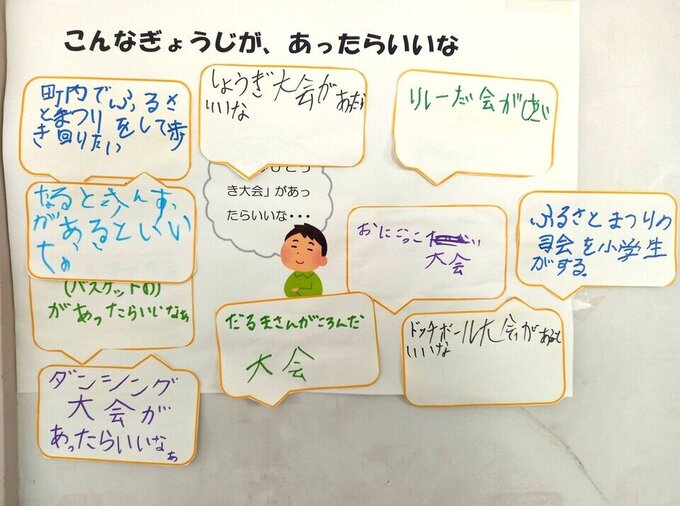 こんなぎょうじが、あったらいいな
町内でふるさ
とまつりをして歩
き回りたい
しょうぎ大会があったら
いいな
リレーだ
会がしたい
き大会」があっ
たらいいな・・・
なると
があるといい
な
おにごっこ
大会
ふるさとまつりの
司会を小学生
がする
(バスケットの)
があったらいいなぁ
だるまさんがころんだ
大会
ドッチボール大会があると
いいな
ダンシング
大会が
あったらいいなぁ